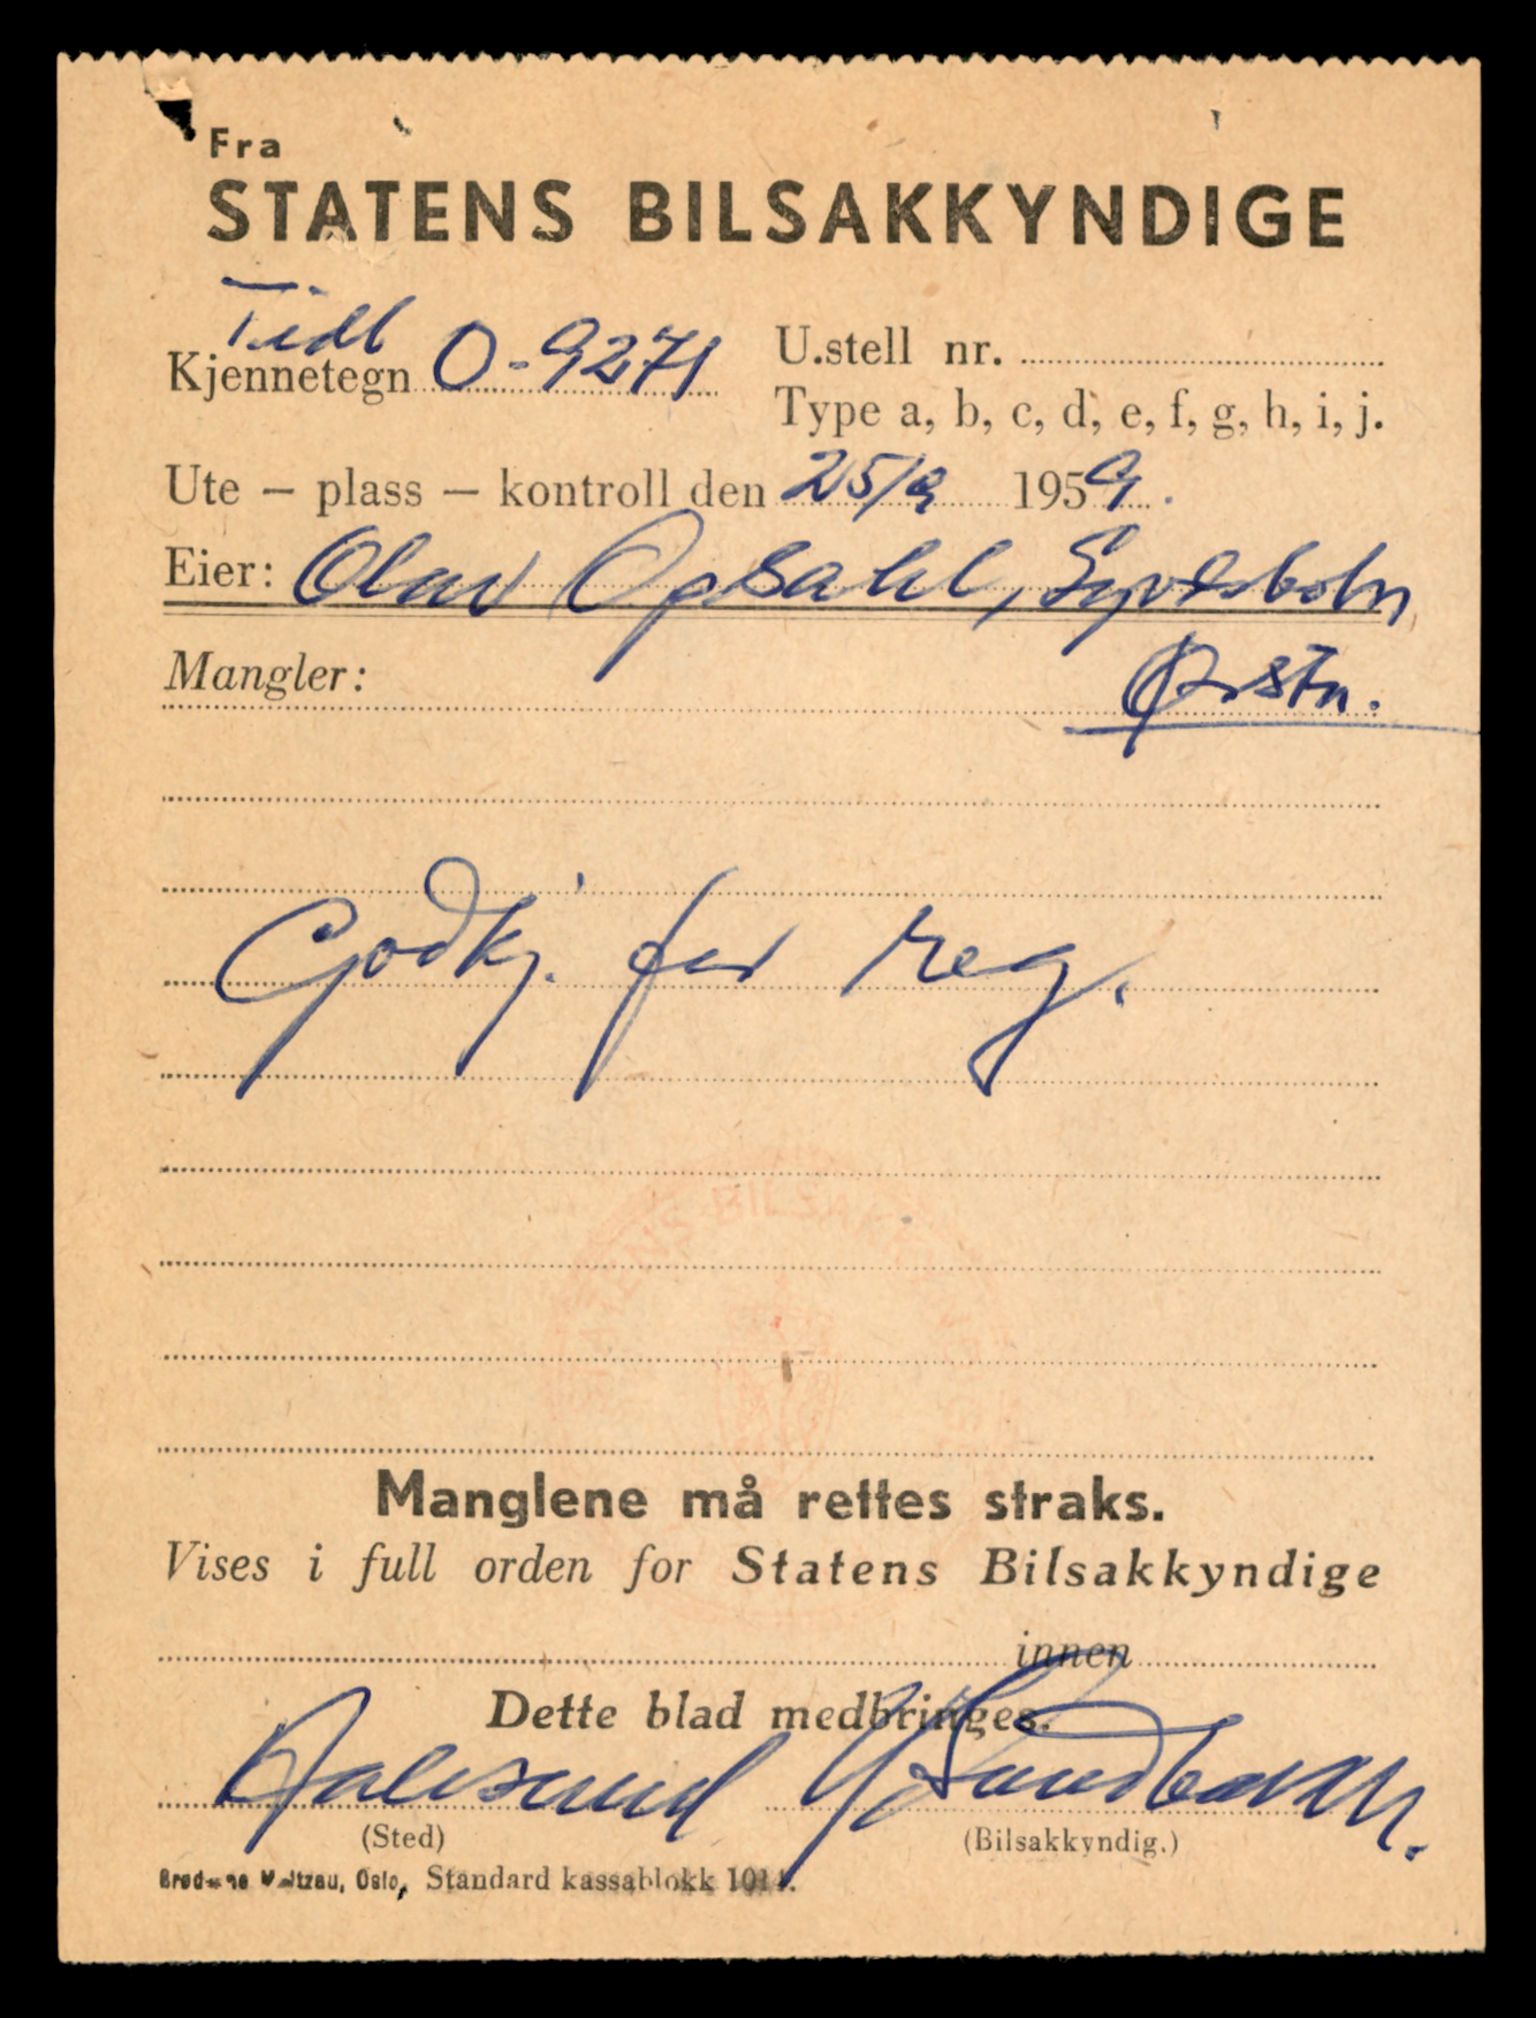 Fra
STATENS BILSAKKYNDIGE
Tidl
Kjennetegn O-9271
U.stell nr.
Type a, b, c, d, e, f, g, h, i, j.
Ute – plass – kontroll den 25/9 1959.
Eier: Olav Opsahl,
Mangler: Ørsta.
Godkj. for reg.
Manglene må rettes straks.
Vises i full orden for Statens Bilsakkyndige
innen
Dette blad medbringes.
Aalesund
(Sted)
(Bilsakkyndig.)
Oslo, Standard kassablokk